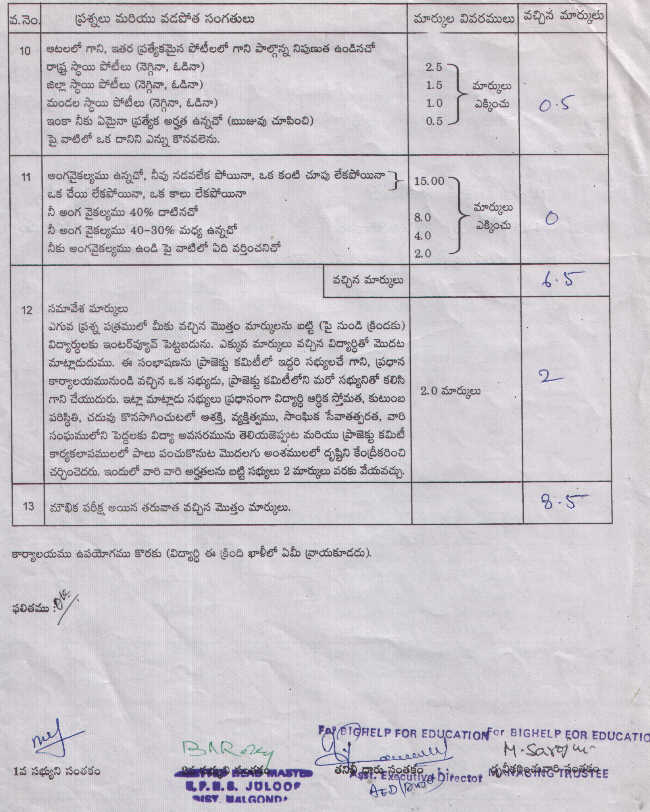 వ.నెం. ప్రశ్నలు మరియు వడపోత సంగతులు మార్కుల వివరములు వచ్చిన మార్కులు
10 ఆటలలో గాని, ఇతర ప్రత్యేకమైన పోటీలలో గాని పాల్గొన్న నిపుణత ఉండినచో
రాష్ట్ర స్థాయి పోటీలు (నెగ్గినా, ఓడినా) 2.5
జిల్లా స్థాయి పోటీలు (నెగ్గినా, ఓడినా) 1.5 మార్కులు
మండల స్థాయి పోటీలు (నెగ్గినా, ఓడినా) 1.0 ఎక్కించు 0.5
ఇంకా నీకు ఏమైనా ప్రత్యేక అర్హత ఉన్నచో (ఋజువు చూపించి) 0.5
పై వాటిలో ఒక దానిని ఎన్ను కొనవలెను.
11 అంగవైకల్యము ఉన్నచో, నీవు నడవలేక పోయినా, ఒక కంటి చూపు లేకపోయినా 15.00
ఒక చేయి లేకపోయినా, ఒక కాలు లేకపోయినా
నీ అంగ వైకల్యము 40% దాటినచో 8.0 మార్కులు 0
నీ అంగ వైకల్యము 40-30% మధ్య ఉన్నచో 4.0 ఎక్కించు
నీకు అంగవైకల్యము ఉండి పై వాటిలో ఏది వర్తించనిచో 2.0
వచ్చిన మార్కులు 6.5
12 సమావేశ మార్కులు
ఎగువ ప్రశ్న పత్రములో మీకు వచ్చిన మొత్తం మార్కులను బట్టి (పై నుండి క్రిందకు)
విద్యార్థులకు ఇంటర్‌వ్యూవ్ పెట్టబడును. ఎక్కువ మార్కులు వచ్చిన విద్యార్థితో మొదట
మాట్లాడుదుము. ఈ సంభాషణను ప్రాజెక్టు కమిటీలో ఇద్దరి సభ్యులచే గాని, ప్రధాన
కార్యాలయమునుండి వచ్చిన ఒక సభ్యుడు, ప్రాజెక్టు కమిటీలోని మరో సభ్యునితో కలిసి
గాని చేయుదురు. ఇట్లా మాట్లాడు సభ్యులు ప్రధానంగా విద్యార్థి ఆర్థిక స్తోమత, కుటుంబ 2.0 మార్కులు 2
పరిస్థితి, చదువు కొనసాగించుటలో ఆశక్తి, వ్యక్తిత్వము, సాంఘిక సేవాతత్పరత, వారి
సంఘములోని పెద్దలకు విద్యా అవసరమును తెలియజెప్పుట మరియు ప్రాజెక్టు కమిటీ
కార్యకలాపములలో పాలు పంచుకొనుట మొదలగు అంశములలో దృష్టిని కేంద్రీకరించి
చర్చించెదరు. ఇందులో వారి వారి అర్హతలను బట్టి సభ్యులు 2 మార్కులు వరకు వేయవచ్చు.
13 మౌఖిక పరీక్ష అయిన తరువాత వచ్చిన మొత్తం మార్కులు. 8.5
కార్యాలయము ఉపయోగము కొరకు (విద్యార్థి ఈ క్రింది ఖాళీలో ఏమీ వ్రాయకూడదు).
ఫలితము :
For BIGHELP FOR EDUCATION For BIGHELP FOR EDUCATION
1వ సభ్యుని సంతకం తనిఖీ దారు సంతకం
Asst. Executive Director MANAGING TRUSTEE
HEAD MASTER
DIST. NALGONDA